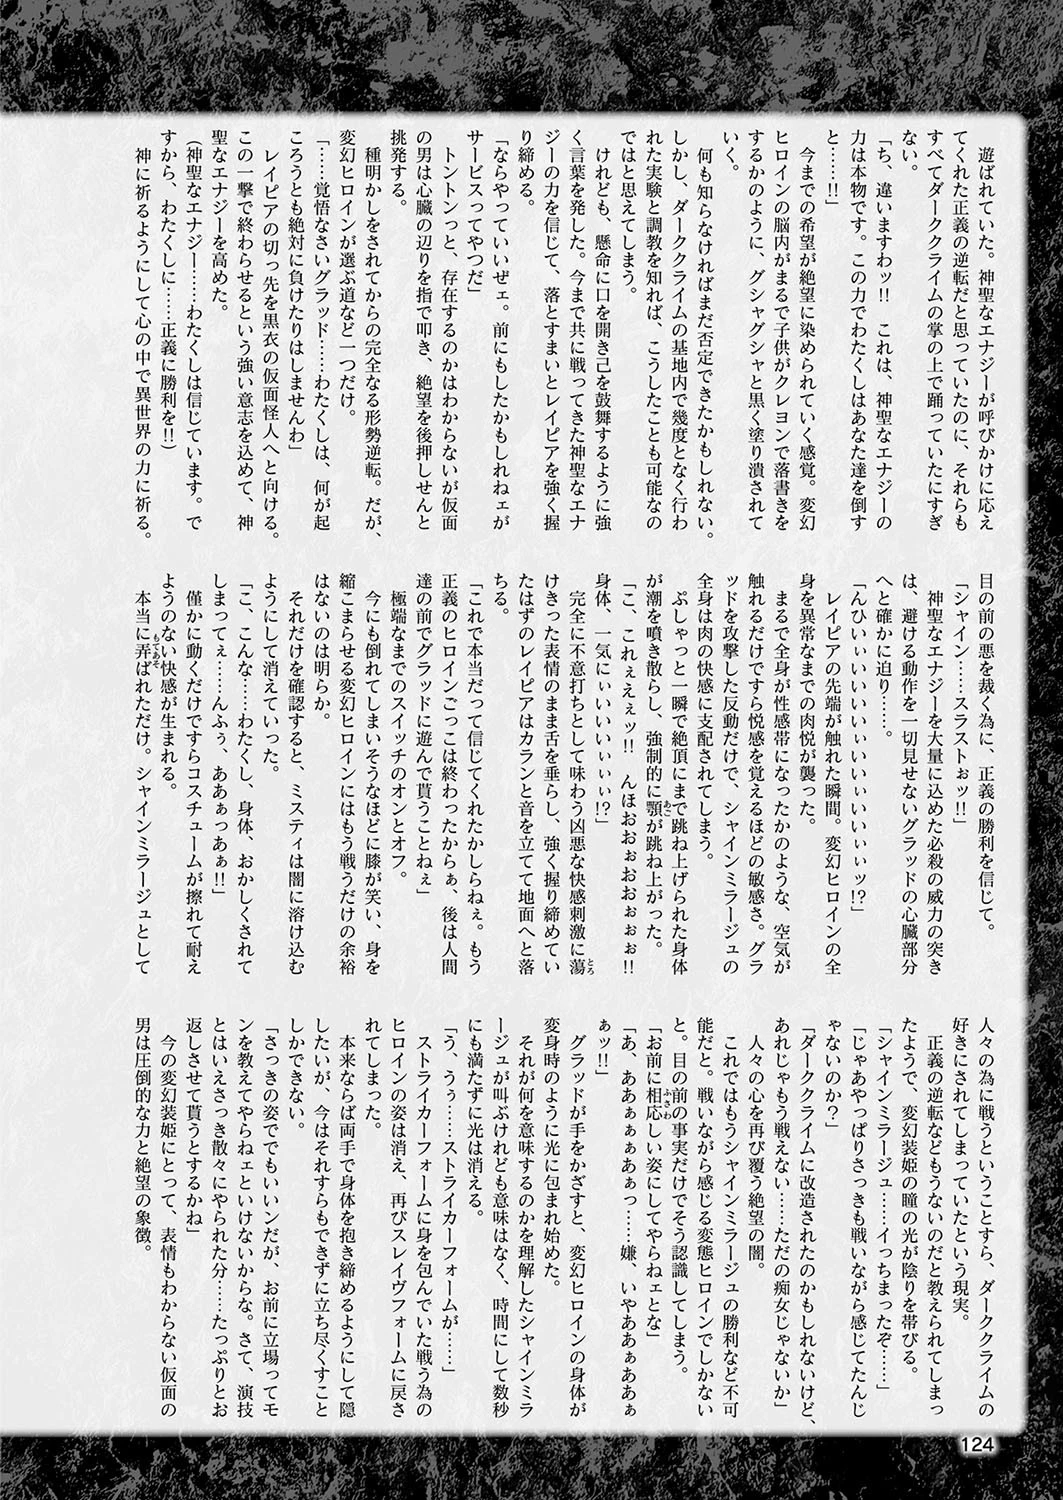 遊ばれていた。神聖なエナジーが呼びかけに応え
てくれた正義の逆転だと思っていたのに、それらも
すべてダーククライムの掌の上で踊っていたにすぎ
ない。
「ち、違いますわッ!!　これは、神聖なエナジーの
力は本物です。この力でわたくしはあなた達を倒す
と……!!」
　今までの希望が絶望に染められていく感覚。変幻
ヒロインの脳内がまるで子供がクレヨンで落書きを
するかのように、グシャグシャと黒く塗り潰されて
いく。
　何も知らなければまだ否定できたかもしれない。
しかし、ダーククライムの基地内で幾度となく行わ
れた実験と調教を知れば、こうしたことも可能なの
ではと思えてしまう。
　けれども、懸命に口を開き己を鼓舞するように強
く言葉を発した。今まで共に戦ってきた神聖なエナ
ジーの力を信じて、落とすまいとレイピアを強く握
り締める。
「ならやっていいぜェ。前にもしたかもしれねェが
サービスってやつだ」
　トントンっと、存在するのかはわからないが仮面
の男は心臓の辺りを指で叩き、絶望を後押しせんと
挑発する。
　種明かしをされてからの完全なる形勢逆転。だが、
変幻ヒロインが選ぶ道など一つだけ。
「……覚悟なさいグラッド……わたくしは、何が起
ころうとも絶対に負けたりはしませんわ」
　レイピアの切っ先を黒衣の仮面怪人へと向ける。
この一撃で終わらせるという強い意志を込めて、神
聖なエナジーを高めた。
（神聖なエナジー……わたくしは信じています。で
すから、わたくしに……正義に勝利を!!）
　神に祈るようにして心の中で異世界の力に祈る。
目の前の悪を裁く為に、正義の勝利を信じて。
「シャイン……スラストぉッ!!」
　神聖なエナジーを大量に込めた必殺の威力の突き
は、避ける動作を一切見せないグラッドの心臓部分
へと確かに迫り……。
「んひぃぃいいいいぃいいぃいいぃぃッ!?」
　レイピアの先端が触れた瞬間。変幻ヒロインの全
身を異常なまでの肉悦が襲った。
　まるで全身が性感帯になったかのような、空気が
触れるだけですら悦感を覚えるほどの敏感さ。グラ
ッドを攻撃した反動だけで、シャインミラージュの
全身は肉の快感に支配されてしまう。
　ぷしゃっと一瞬で絶頂にまで跳ね上げられた身体
が潮を噴き散らし、強制的に顎が跳ね上がった。
「こ、これぇえぇッ!!　んほぉおぉおおぉぉぉ!!
身体、一気にぃいいいいぃぃ!?」
　完全に不意打ちとして味わう凶悪な快感刺激に蕩
けきった表情のまま舌を垂らし、強く握り締めてい
たはずのレイピアはカランと音を立てて地面へと落
ちる。
「これで本当だって信じてくれたかしらねぇ。もう
正義のヒロインごっこは終わったからぁ、後は人間
達の前でグラッドに遊んで貰うことねぇ」
　極端なまでのスイッチのオンとオフ。
　今にも倒れてしまいそうなほどに膝が笑い、身を
縮こまらせる変幻ヒロインにはもう戦うだけの余裕
はないのは明らか。
　それだけを確認すると、ミスティは闇に溶け込む
ようにして消えていった。
「こ、こんな……わたくし、身体、おかしくされて
しまってぇ……んふぅ、ああぁっあぁ!!」
　僅かに動くだけですらコスチュームが擦れて耐え
ようのない快感が生まれる。
　本当に弄ばれただけ。シャインミラージュとして
人々の為に戦うということすら、ダーククライムの
好きにされてしまっていたという現実。
　正義の逆転などもうないのだと教えられてしまっ
たようで、変幻装姫の瞳の光が陰りを帯びる。
「シャインミラージュ……イっちまったぞ……」
「じゃあやっぱりさっきも戦いながら感じてたんじ
ゃないのか？」
「ダーククライムに改造されたのかもしれないけど、
あれじゃもう戦えない……ただの痴女じゃないか」
　人々の心を再び覆う絶望の闇。
　これではもうシャインミラージュの勝利など不可
能だと。戦いながら感じる変態ヒロインでしかない
と。目の前の事実だけでそう認識してしまう。
「お前に相応しい姿にしてやらねェとな」
「あ、ああぁぁぁあぁっ……嫌、いやああぁあぁぁ
ぁッ!!」
　グラッドが手をかざすと、変幻ヒロインの身体が
変身時のように光に包まれ始めた。
　それが何を意味するのかを理解したシャインミラ
ージュが叫ぶけれども意味はなく、時間にして数秒
にも満たずに光は消える。
「う、うぅ……ストライカーフォームが……」
　ストライカーフォームに身を包んでいた戦う為の
ヒロインの姿は消え、再びスレイヴフォームに戻さ
れてしまった。
　本来ならば両手で身体を抱き締めるようにして隠
したいが、今はそれすらもできずに立ち尽くすこと
しかできない。
「さっきの姿ででもいいンだが、お前に立場ってモ
ンを教えてやらねェといけないからな。さて、演技
とはいえさっき散々にやられた分……たっぷりとお
返しさせて貰うとするかね」
　今の変幻装姫にとって、表情もわからない仮面の
男は圧倒的な力と絶望の象徴。
124